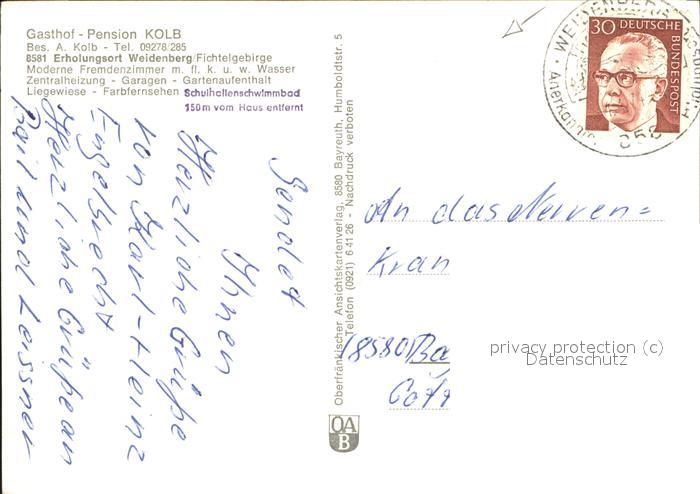 Gasthof - Pension KOLB
Bes. A. Kolb - Tel. 09278/285
8581 Erholungsort Weidenberg/Fichtelgebirge
Moderne Fremdenzimmer m. fl. k. u. w. Wasser
Zentralheizung - Garagen - Gartenaufenthalt
Liegewiese - Farbfernsehen
Schulhallenschwimmbad
150m vom Haus entfernt
Sendet
Ihnen
Herzliche Grüße
von Karl-Heinz
Engelbrecht
Herzliche Grüße an
und Leissner
Oberfränkischer Ansichtskartenverlag, 8580 Bayreuth, Humboldtstr. 5
Telefon (0921) 6 41 26 - Nachdruck verboten
OA
B
30 DEUTSCHE
BUNDESPOST
WEIDENBERG
Anerkannter
858
An das Nerven=
Kran
8580 Ba
privacy protection (c)
Datenschutz